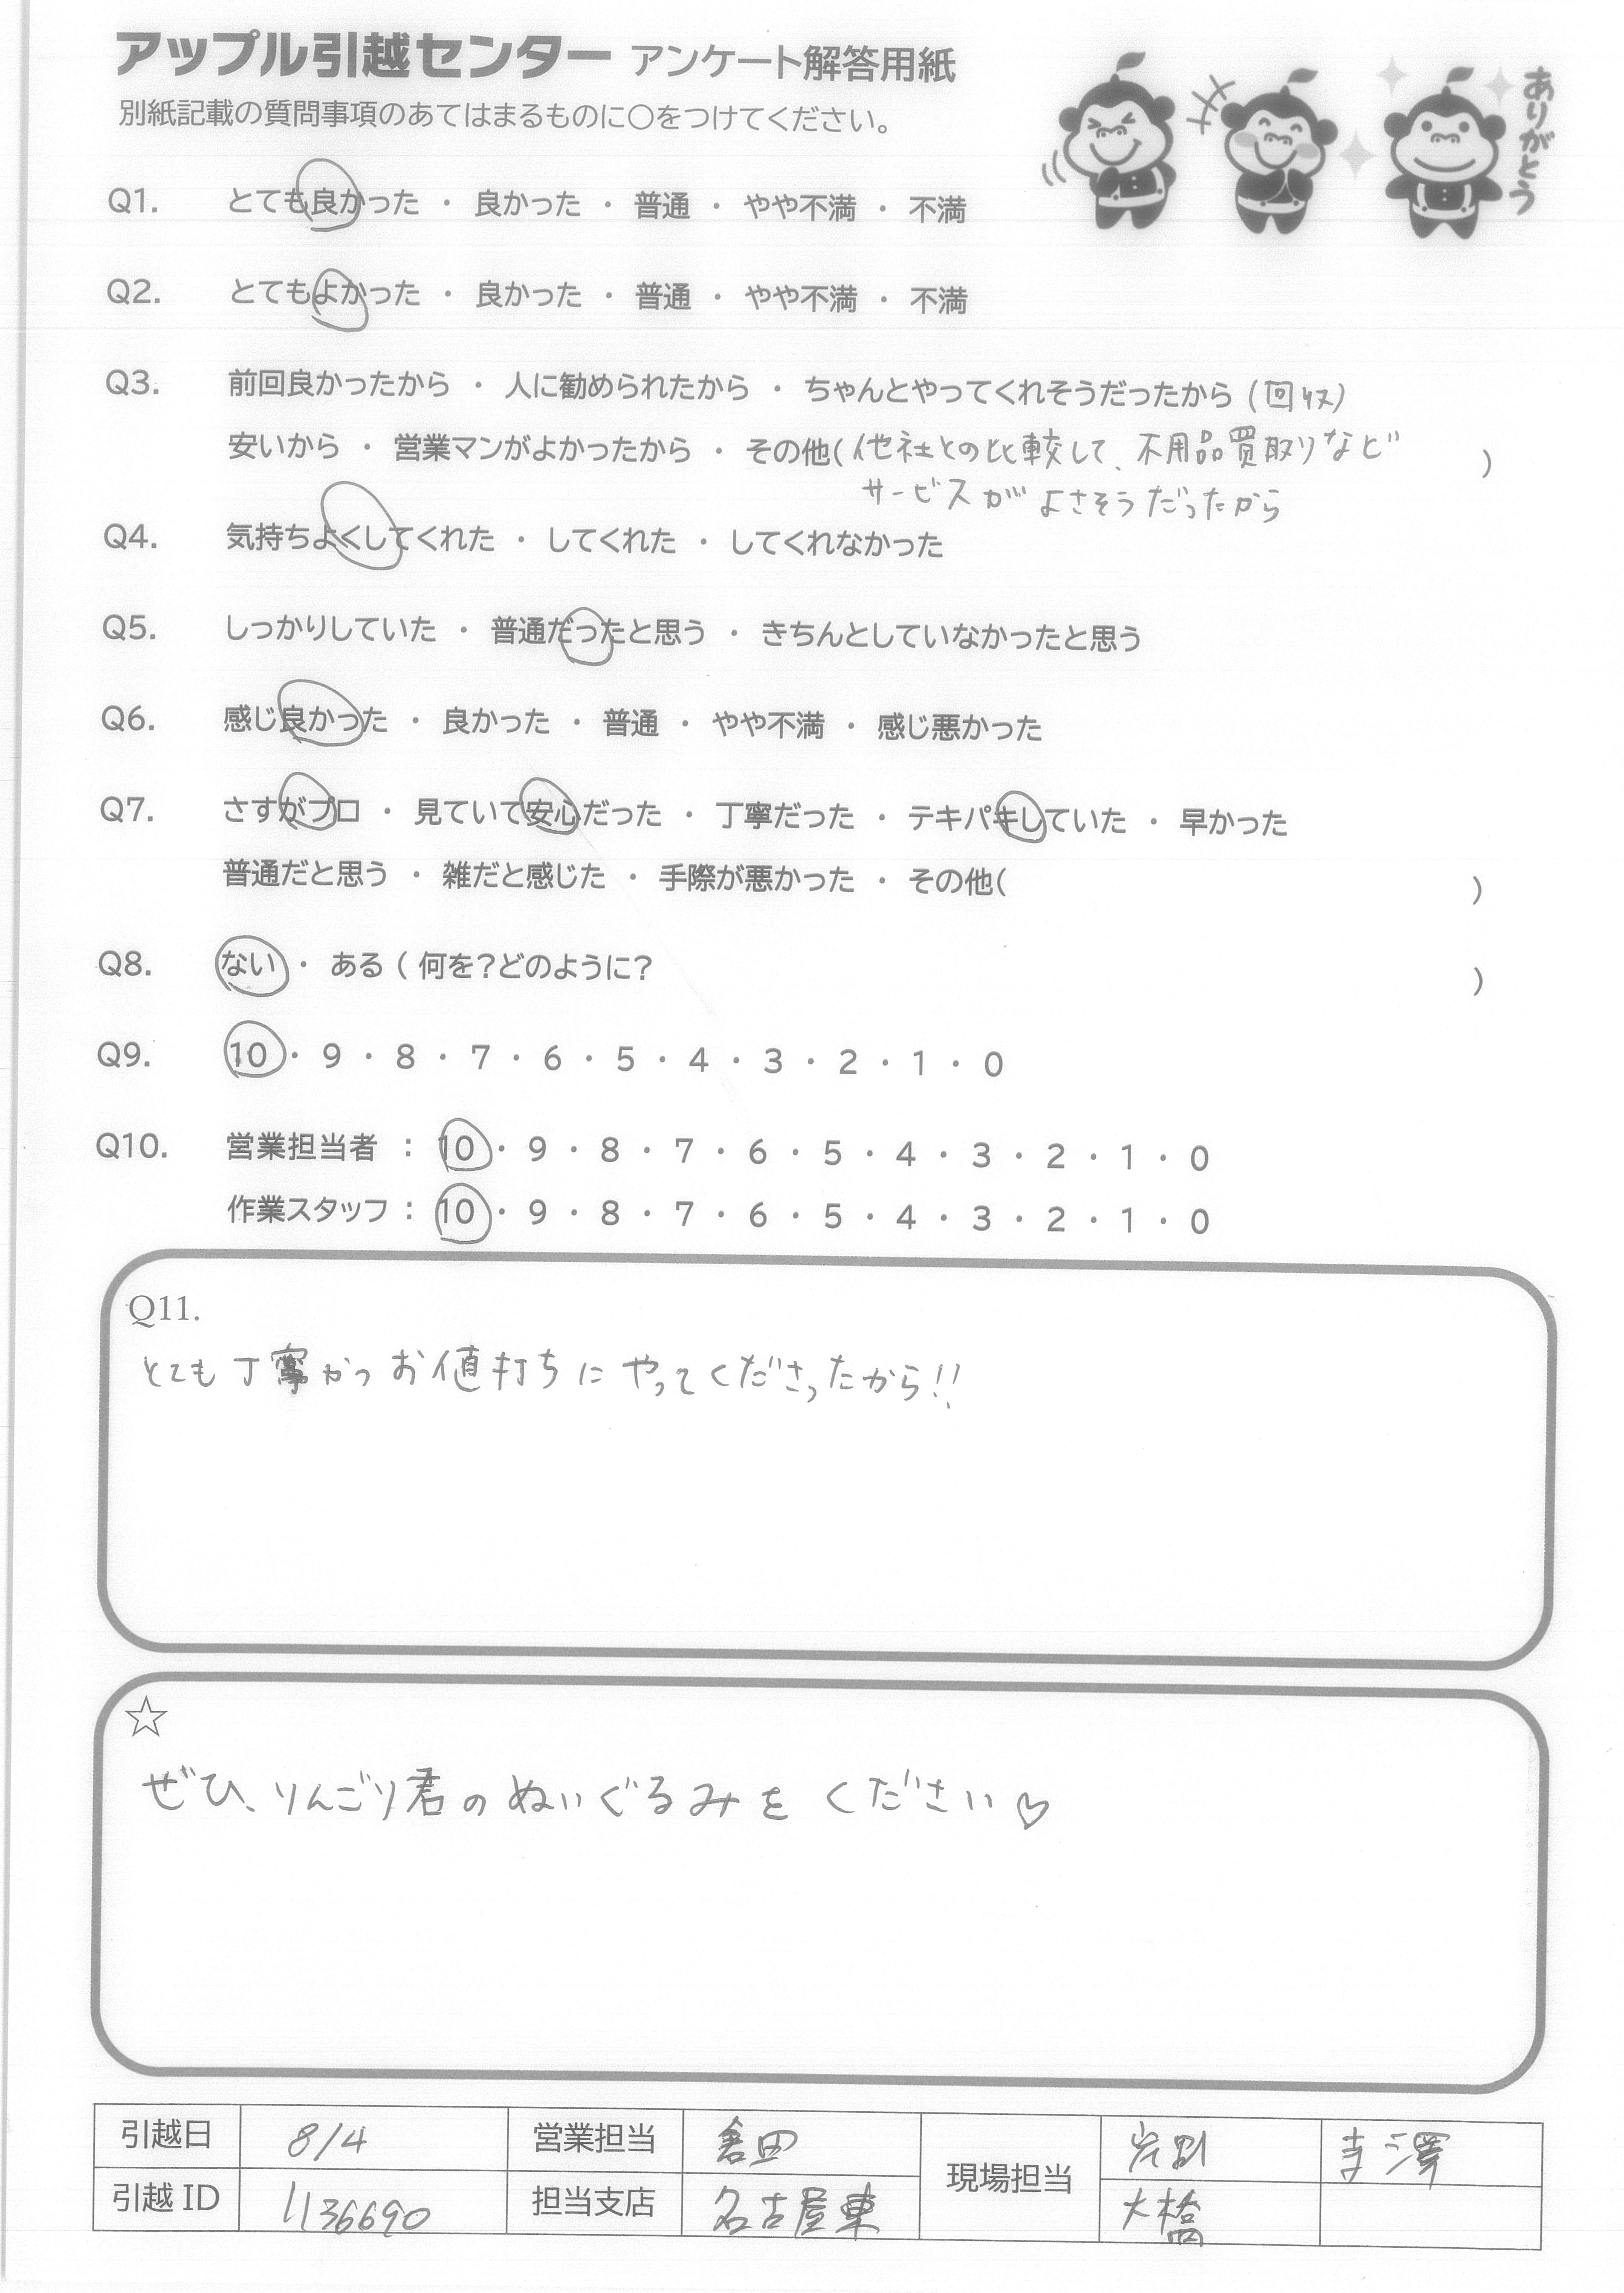 アップル引越センター アンケート解答用紙
別紙記載の質問事項のあてはまるものに○をつけてください。
ありがとう
Q1. とても良かった ・ 良かった ・ 普通 ・ やや不満 ・ 不満
Q2. とてもよかった ・ 良かった ・ 普通 ・ やや不満 ・ 不満
Q3. 前回良かったから ・ 人に勧められたから ・ ちゃんとやってくれそうだったから (回収)
安いから ・ 営業マンがよかったから ・ その他( 他社との比較して、不用品買取りなど )
サービスがよさそうだったから
Q4. 気持ちよくしてくれた ・ してくれた ・ してくれなかった
Q5. しっかりしていた ・ 普通だったと思う ・ きちんとしていなかったと思う
Q6. 感じ良かった ・ 良かった ・ 普通 ・ やや不満 ・ 感じ悪かった
Q7. さすがプロ ・ 見ていて安心だった ・ 丁寧だった ・ テキパキしていた ・ 早かった
普通だと思う ・ 雑だと感じた ・ 手際が悪かった ・ その他( )
Q8. ない ・ ある ( 何を?どのように? )
Q9. 10 ・ 9 ・ 8 ・ 7 ・ 6 ・ 5 ・ 4 ・ 3 ・ 2 ・ 1 ・ 0
Q10. 営業担当者 : 10 ・ 9 ・ 8 ・ 7 ・ 6 ・ 5 ・ 4 ・ 3 ・ 2 ・ 1 ・ 0
作業スタッフ : 10 ・ 9 ・ 8 ・ 7 ・ 6 ・ 5 ・ 4 ・ 3 ・ 2 ・ 1 ・ 0
Q11.
とても丁寧かつお値打ちにやってくださったから!!
☆
ぜひ、りんごり君のぬいぐるみをください♡
引越日 8/4 営業担当 倉田 現場担当 寺澤
引越ID 1136690 担当支店 名古屋東 大橋